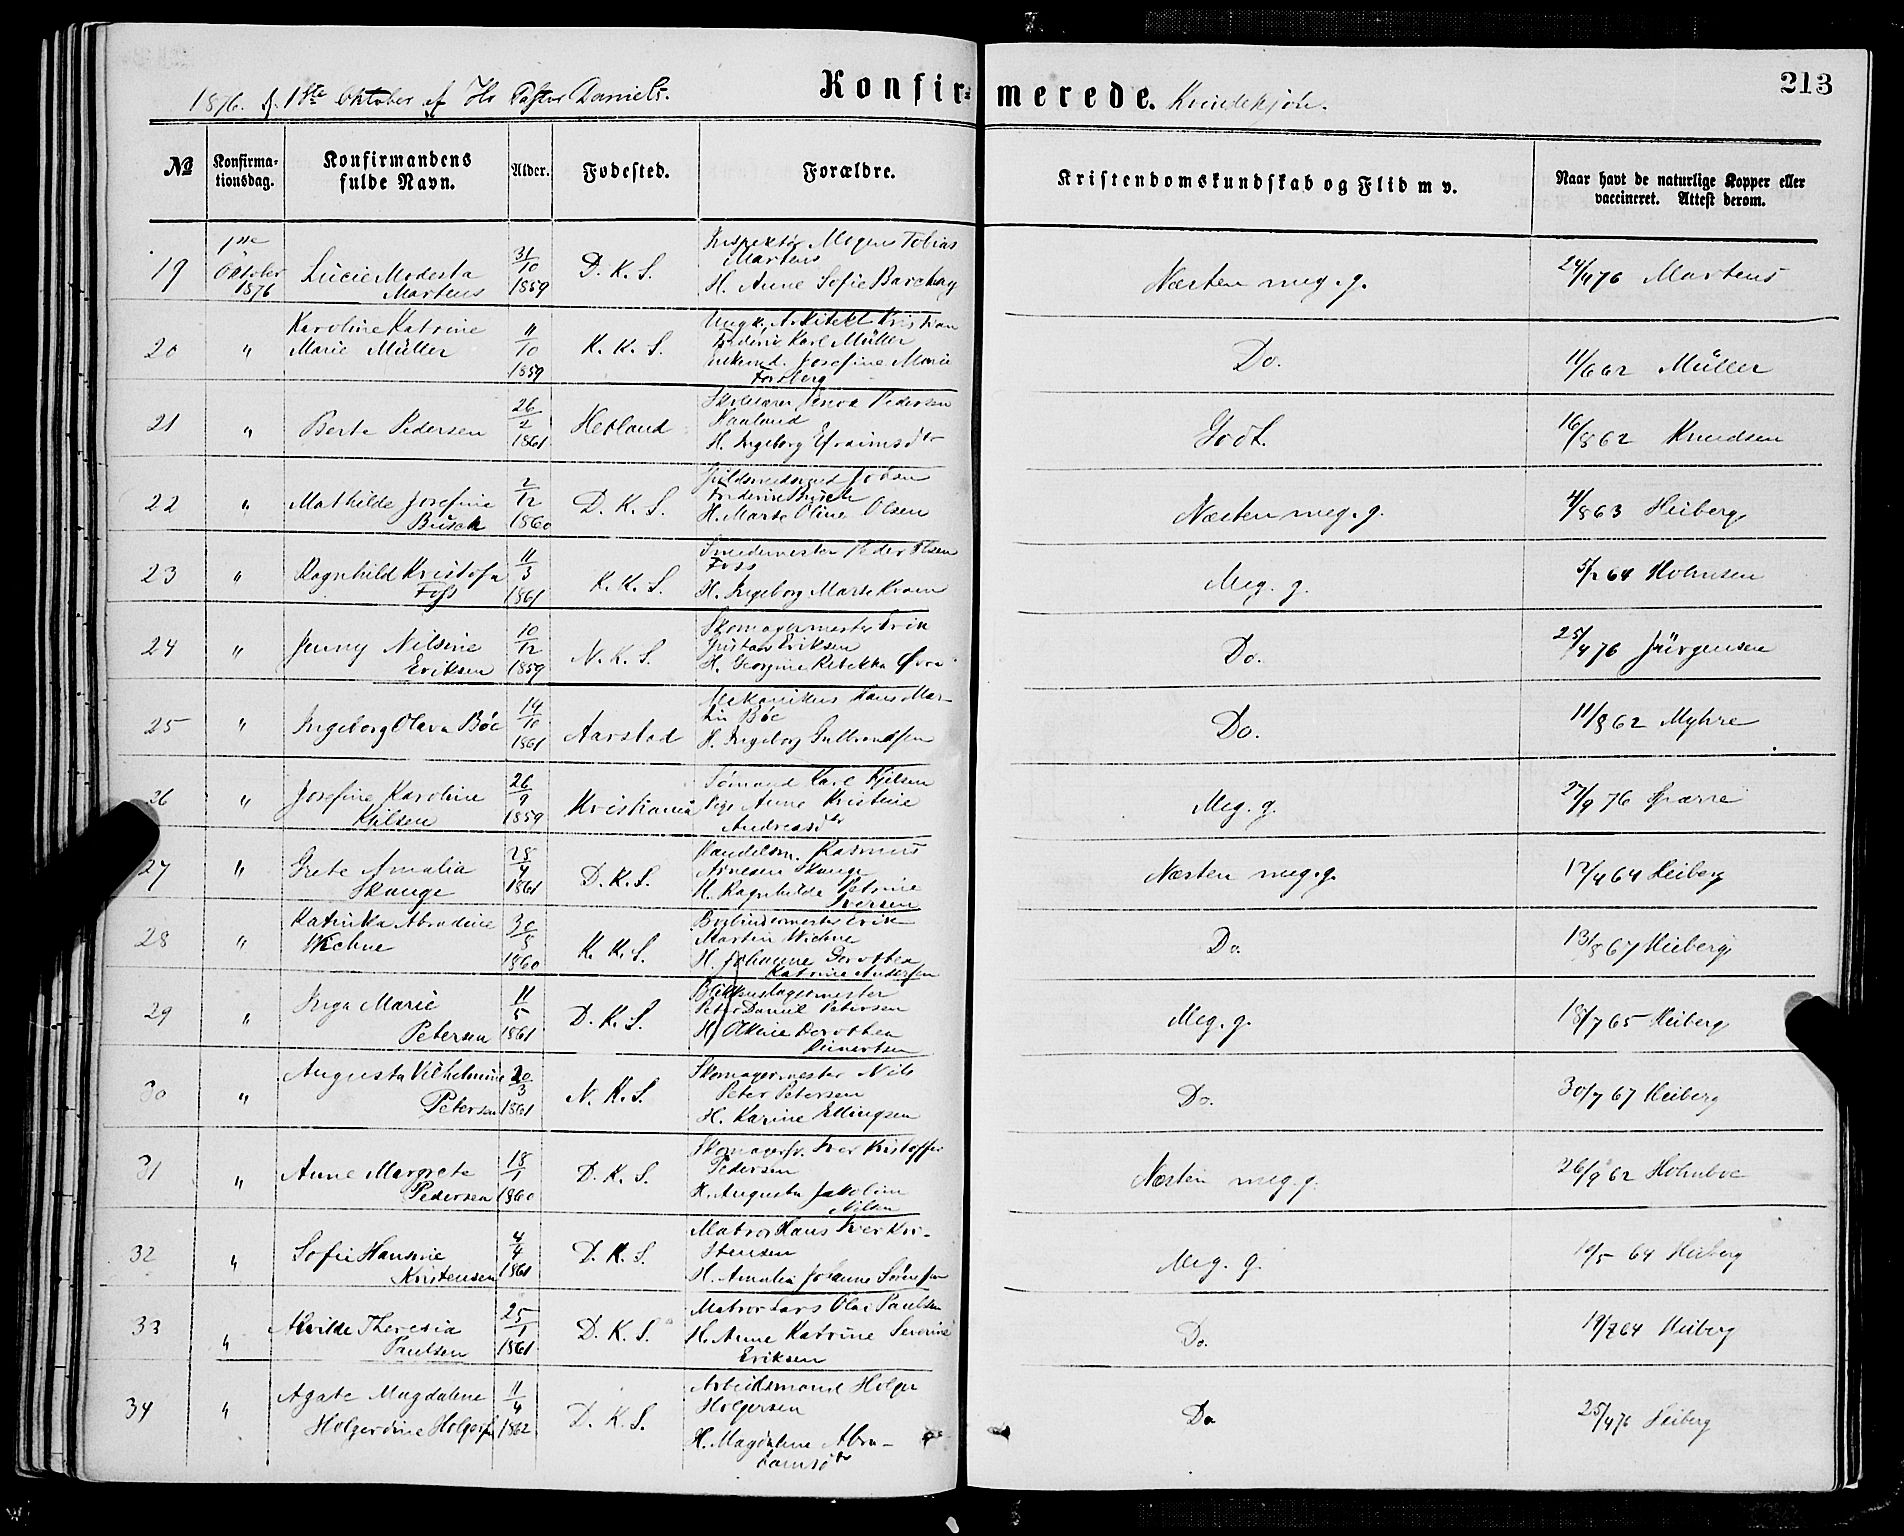 1876. d. 1ste Oktober af Hr Pastor Daniels.
Konfirmerede. Kvindekjøn.
213
№ Konfirmationsdag. Konfirmandens fulde Navn. Alder. Fødested. Forældre. Kristendomskundskab og Flid m v. Naar havt de naturlige Kopper eller vaccineret. Attest derom.
19 1ste Oktober 1876 Lucie Modesta Martens 31/10 1859 D. K. S. Inspektør Mogens Tobias Martens H. Anne Sofie Næsten meg. g. 24/4 76 Martens
20 " Karoline Katrine Marie Müller 11/10 1859 K. K. S. Ungk. Arkitekt Kristian Frederic Karl Müller Josefine Marie Forsberg Do. 11/6 62 Müller
21 " Berte Pedersen 26/2 1861 Hetland Pedersen Haaland H. Ingeborg Godt. 16/8 62 Knudsen
22 " Mathilde Josefine Busch 2/12 1860 D. K. S. Johan Frederic Busch H. Marte Oline Olsen Næsten meg. g. 4/8 63 Heiberg
23 " Ragnhild Kristofa Foss 11/3 1861 K. K. S. Smedemester Peder Olsen Foss H. Ingeborg Marte Meg. g. 5/2 64 Holmsen
24 " Jenny Nilsine Eriksen 10/12 1859 N. K. S. Skomagermester Erik Gustav Eriksen H. Georgine Rebekka Do. 25/4 76 Jürgensen
25 " Ingeborg Olava Bøe 14/10 1861 Aarstad Mekanikus Hans Martin Bøe H. Ingeborg Gulbrandsen Do. 11/8 62 Myhre
26 " Josefine Karoline 26/9 1859 Kristiania Sømand Karl Pige Anne Kristine Andreasdtr Meg. g. 27/9 76
27 " Grete Amalia Skauge 28/4 1861 D. K. S. Handelsm. Rasmus Arnesen Skauge H. Ragnhilda Petrine Iversen Næsten meg. g. 17/4 64 Heiberg
28 " Katinka Abradine Wichne 30/8 1860 K. K. S. Bogbindermester Erik Martin Wichne H. Johanne Dorothea Katrine Andersen Do. 13/8 67 Heiberg
29 " Inga Marie Petersen 11/5 1861 D. K. S. Blikkenslagermester Peter Daniel Petersen H. Dorothea Reinertsen Meg. g. 18/7 65 Heiberg
30 " Augusta Vilhelmine Petersen 20/3 1861 N. K. S. Skomagermester Nils Peter Petersen H. Karine Ellingsen Do. 30/7 67 Heiberg
31 " Anne Margrete Pedersen 18/1 1860 D. K. S. Skomagersv. Iver Kristoffer Pedersen H. Augusta Jakobine Nilsen Næsten meg. g. 26/9 62 Holmboe
32 " Sofie Hansine Kristensen 4/4 1861 D. K. S. Matros Hans Iver Kristensen H. Amalia Johanne Sørensen Meg. g. 19/5 64 Heiberg
33 " Alvilde Theresia Paulsen 25/1 1861 D. K. S. Matros Lars Olai Paulsen H. Anne Katrine Severine Eriksen Do. 19/7 64 Heiberg
34 " Agate Magdalene Holgerdine Holgersen 11/4 1862 D. K. S. Arbeidsmand Holger Holgersen H. Magdalene Abrahamsdtr Do 25/4 76 Heiberg